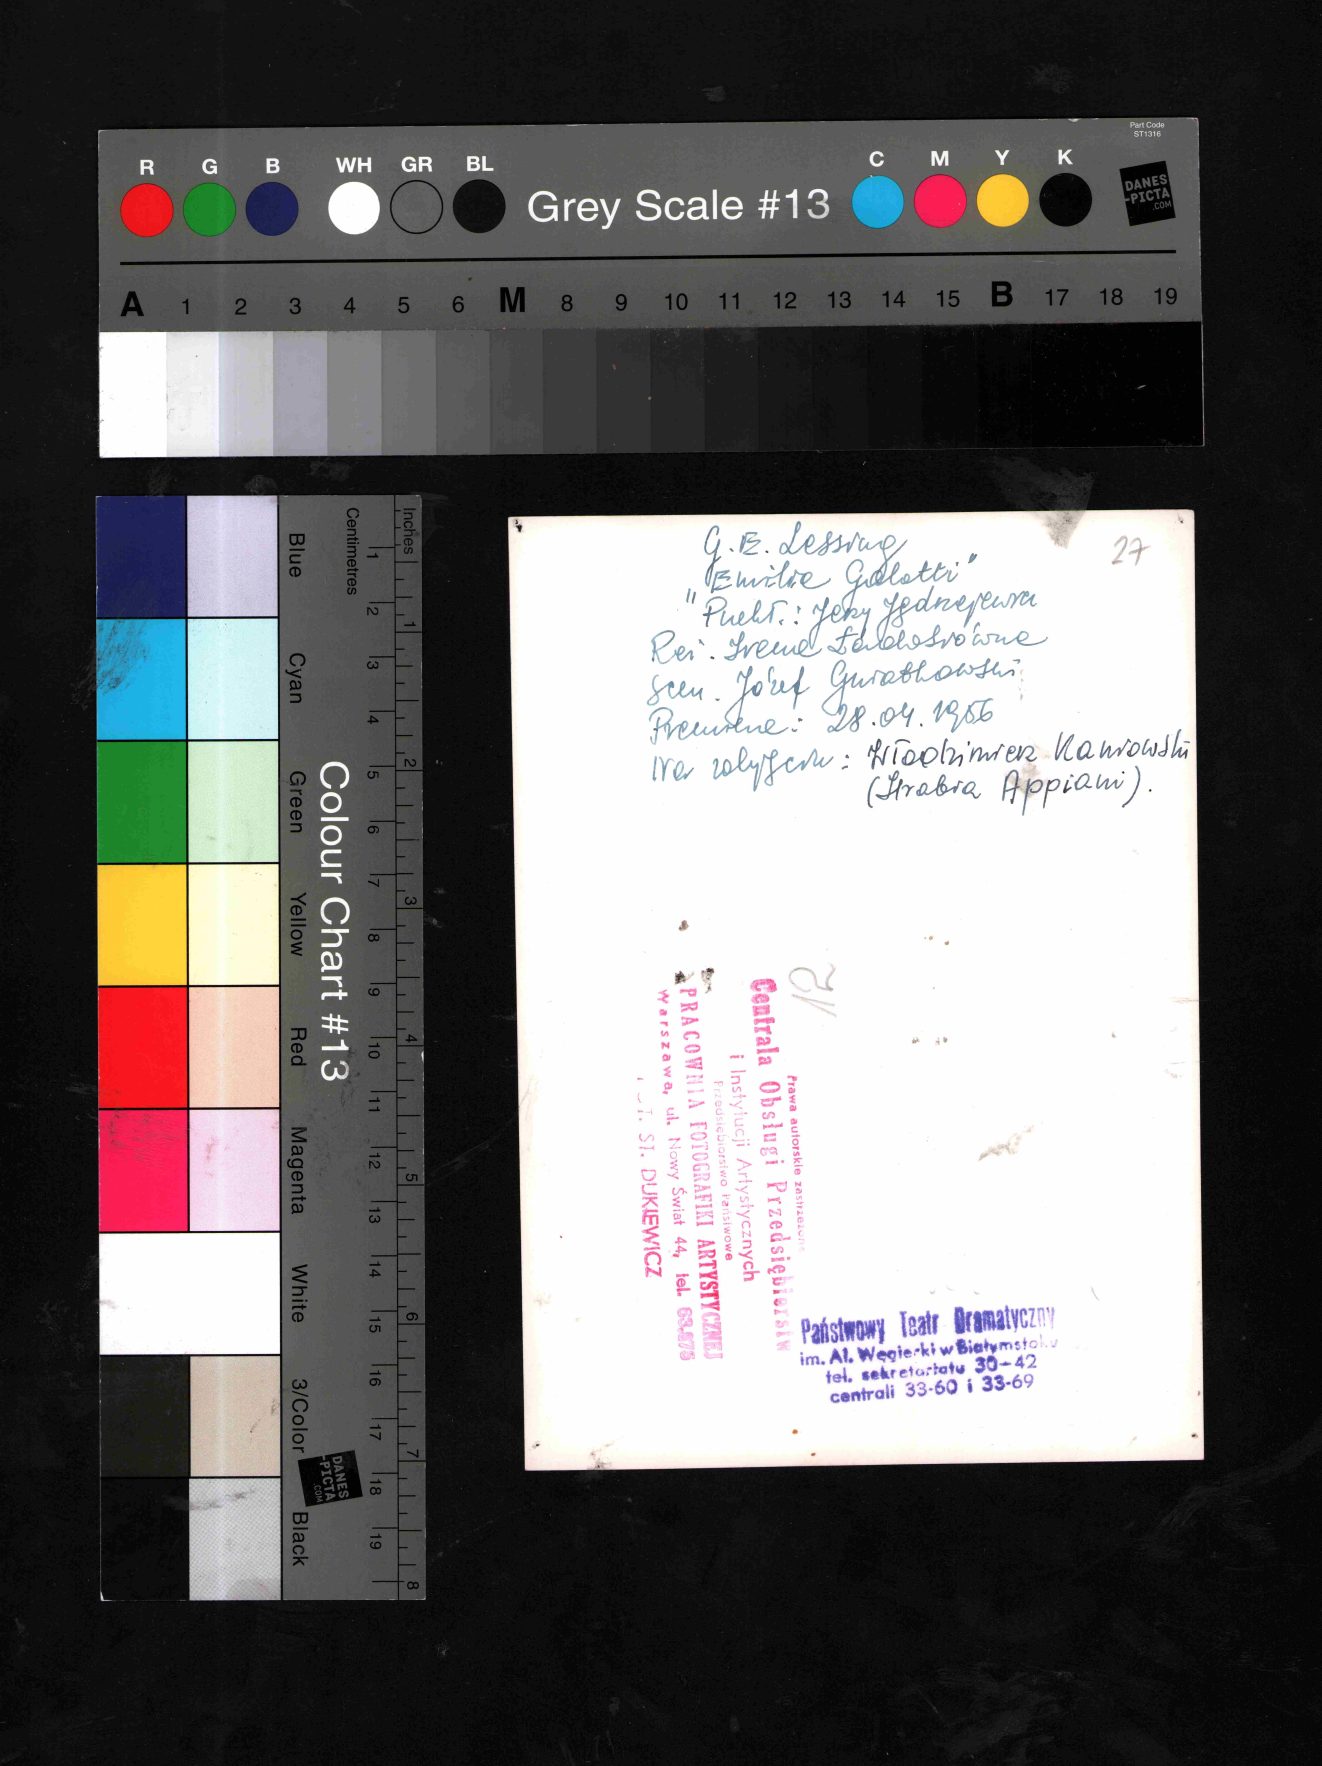 Part Code
ST1316
R G B WH GR BL Grey Scale #13 C M Y K
DANES
-PICTA
.COM
A 1 2 3 4 5 6 M 8 9 10 11 12 13 14 15 B 17 18 19
Blue Cyan Green Yellow Red Magenta White 3/Color Black
Colour Chart #13
DANES
-PICTA
.COM
Centimetres 1 2 3 4 5 6 7 8 9 10 11 12 13 14 15 16 17 18 19
Inches 1 2 3 4 5 6 7 8
27
G. E. Lessing
"Emilia Galotti"
Jerzy Jędrzejewicz
Reż. Irena
Scen. Józef Gwiatkowski
Premiera: 28.04.1956
Na zdjęciu: Włodzimierz Kaniowski
(Hrabia Appiani).
12
Prawa autorskie zastrzeżone
Centrala Obsługi Przedsiębiorstw
i Instytucji Artystycznych
Przedsiębiorstwo Państwowe
PRACOWNIA FOTOGRAFIKI ARTYSTYCZNEJ
Warszawa, ul. Nowy Świat 44, tel.
ST. DUKIEWICZ
Państwowy Teatr Dramatyczny
im. Al. Węgierki w Białymstoku
tel. sekretariatu 30-42
centrali 33-60 i 33-69